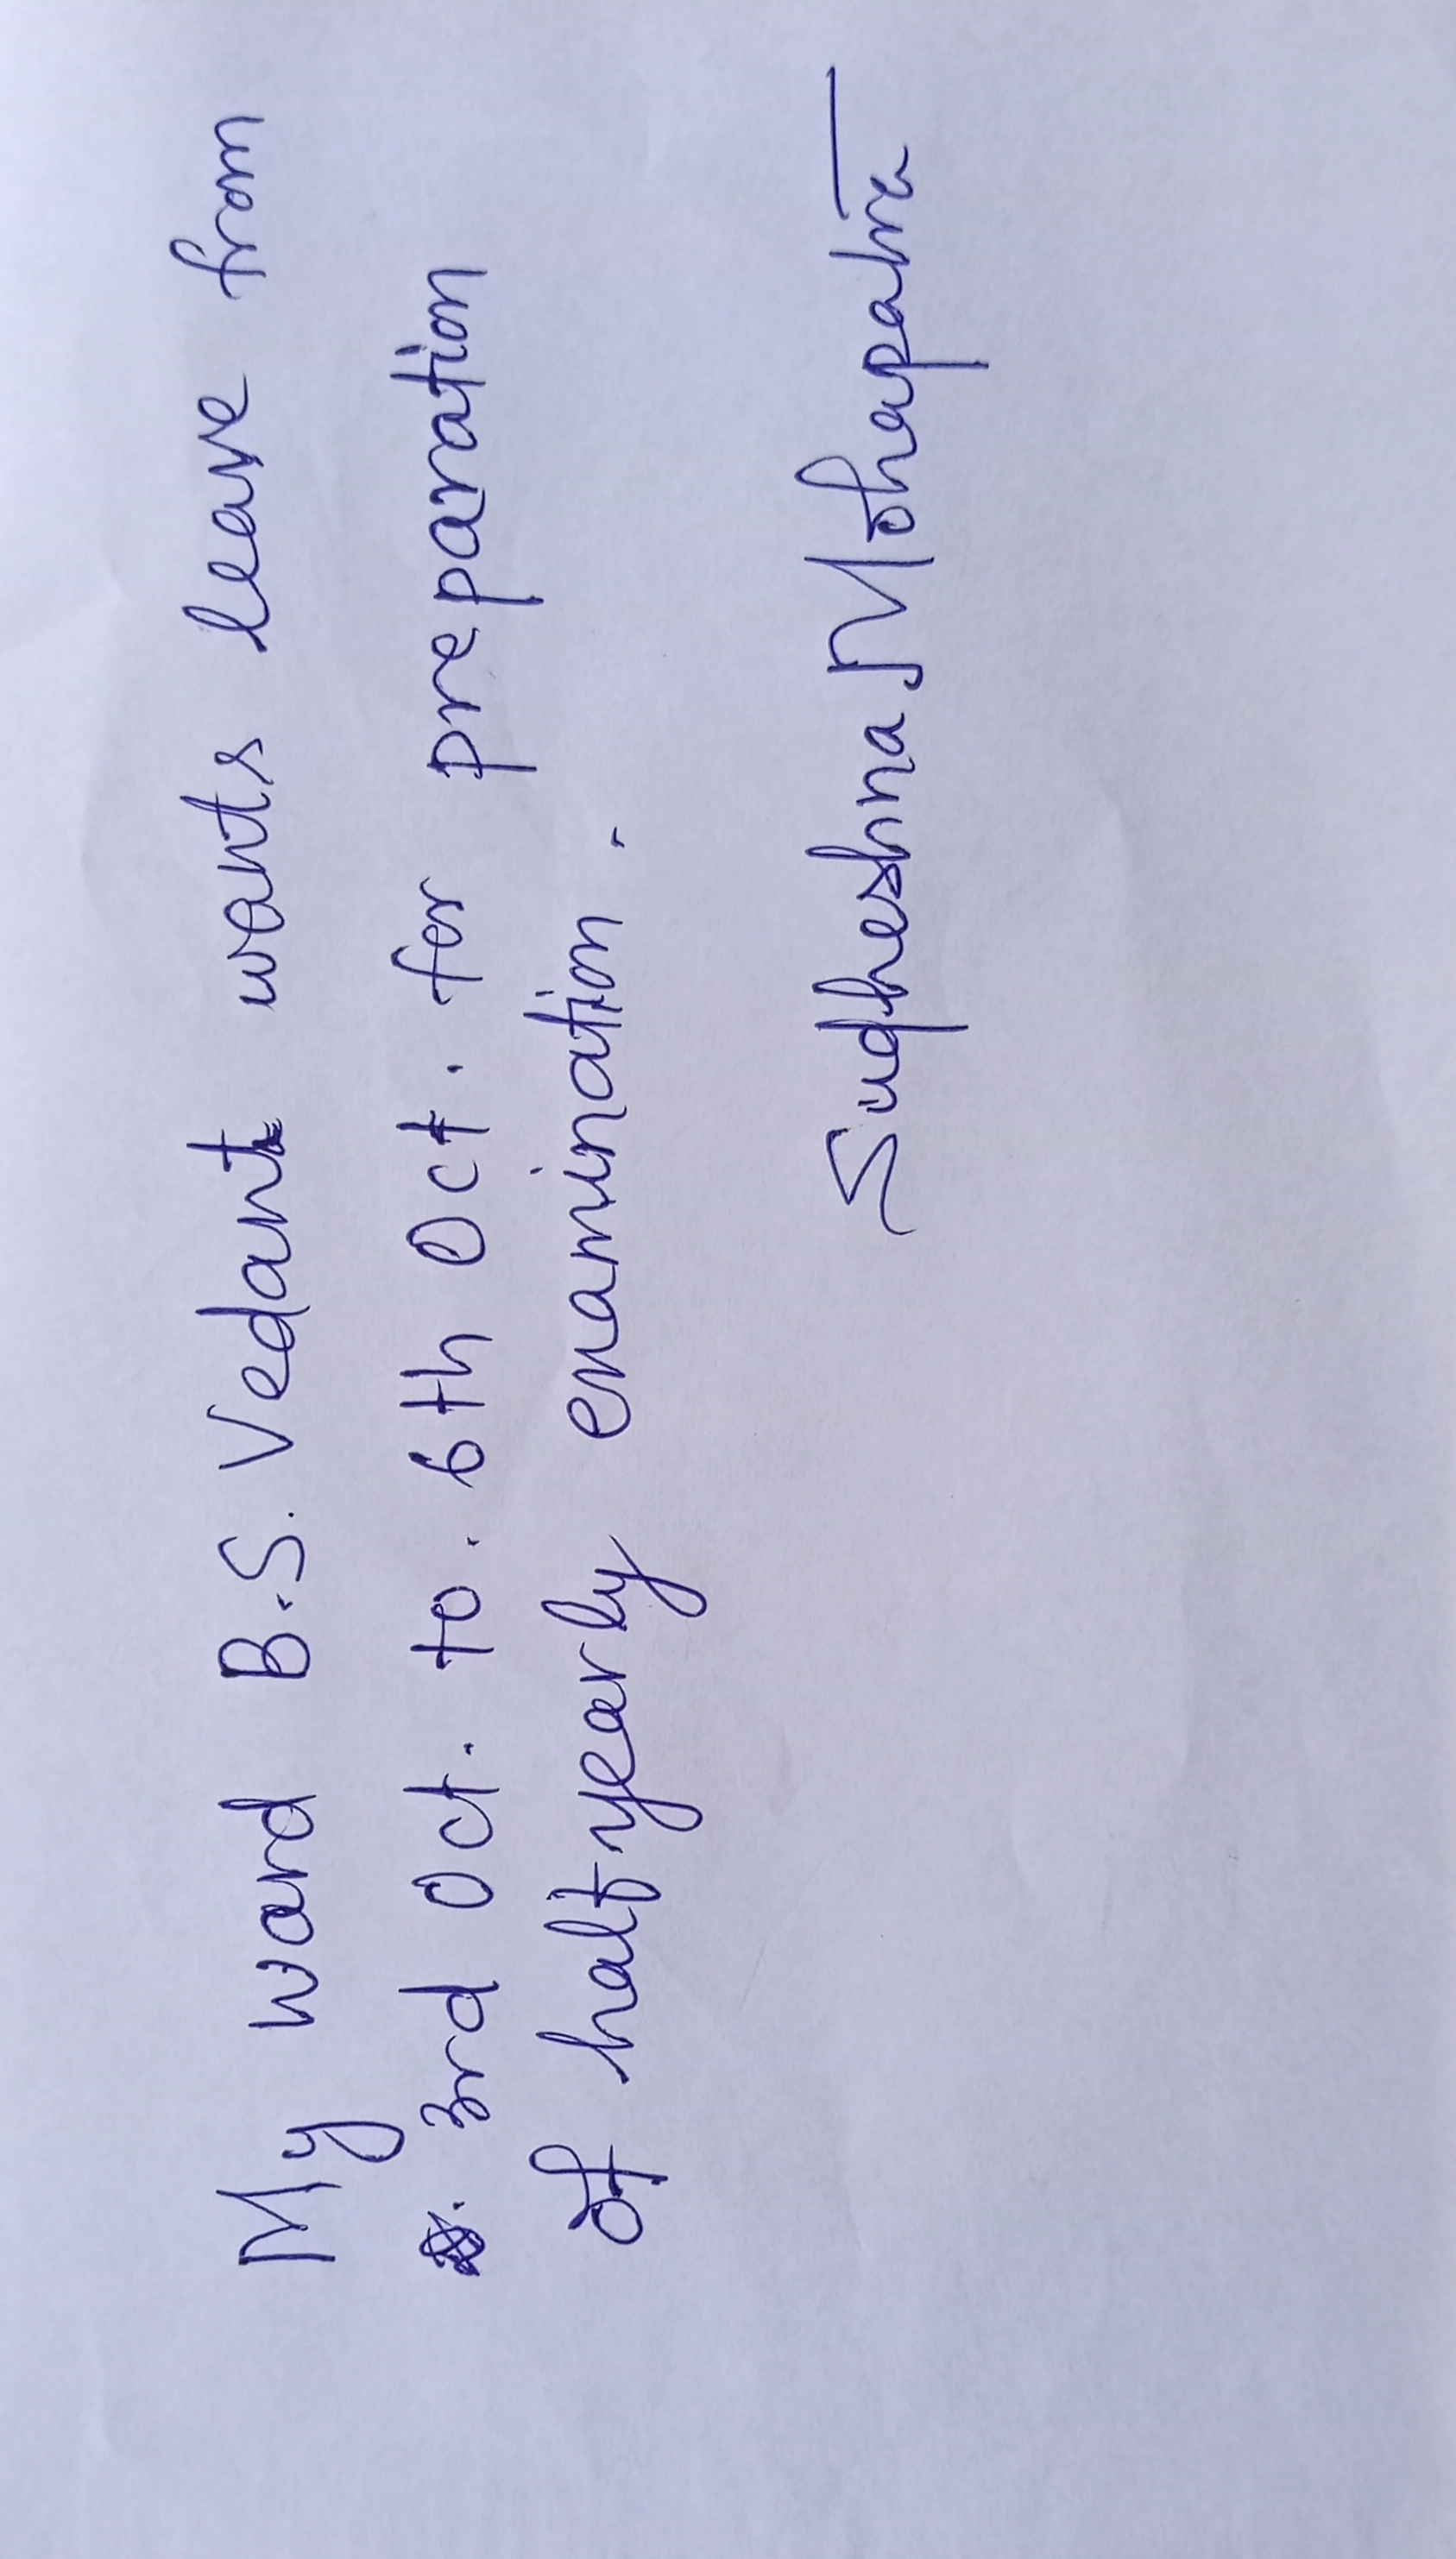 My ward B.S. Vedant wants leave from
3rd Oct. to. 6th Oct. for preparation
of half-yearly examination.
Sudheshna Mohapatra